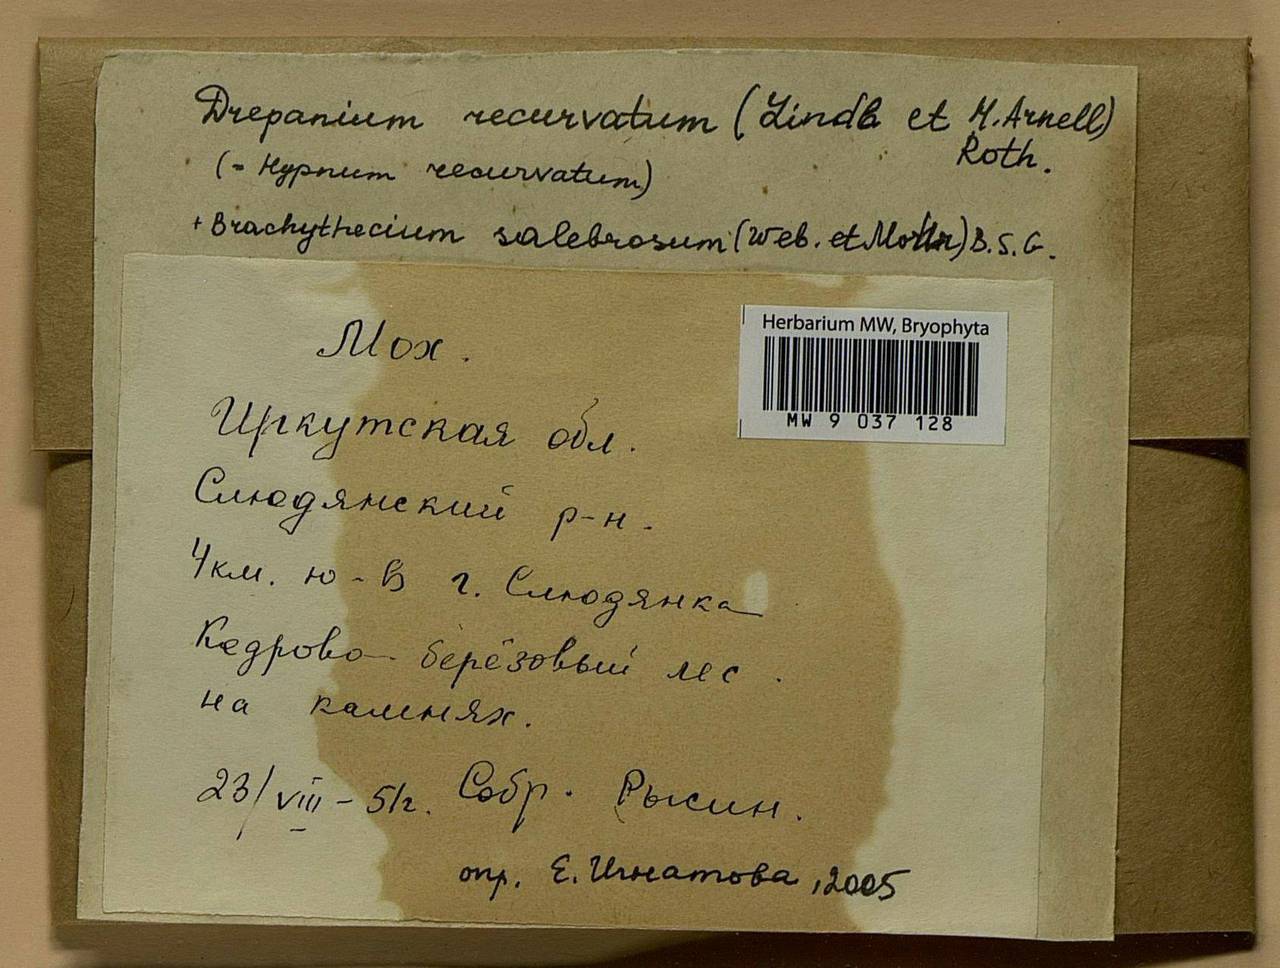 Drepanium recurvatum (Lindb et H. Arnell)
Roth.
(= Hypnum recurvatum)
+ Brachythecium salebrosum (Web. et Mohr) B.S.G.
Herbarium MW, Bryophyta
MW 9 037 128
Мох.
Иркутская обл.
Слюдянский р-н.
4 км. ю-в г. Слюдянка
Кедрово-берёзовый лес.
на камнях.
23/VIII-51г. Собр. Рысин.
опр. Е. Игнатова, 2005